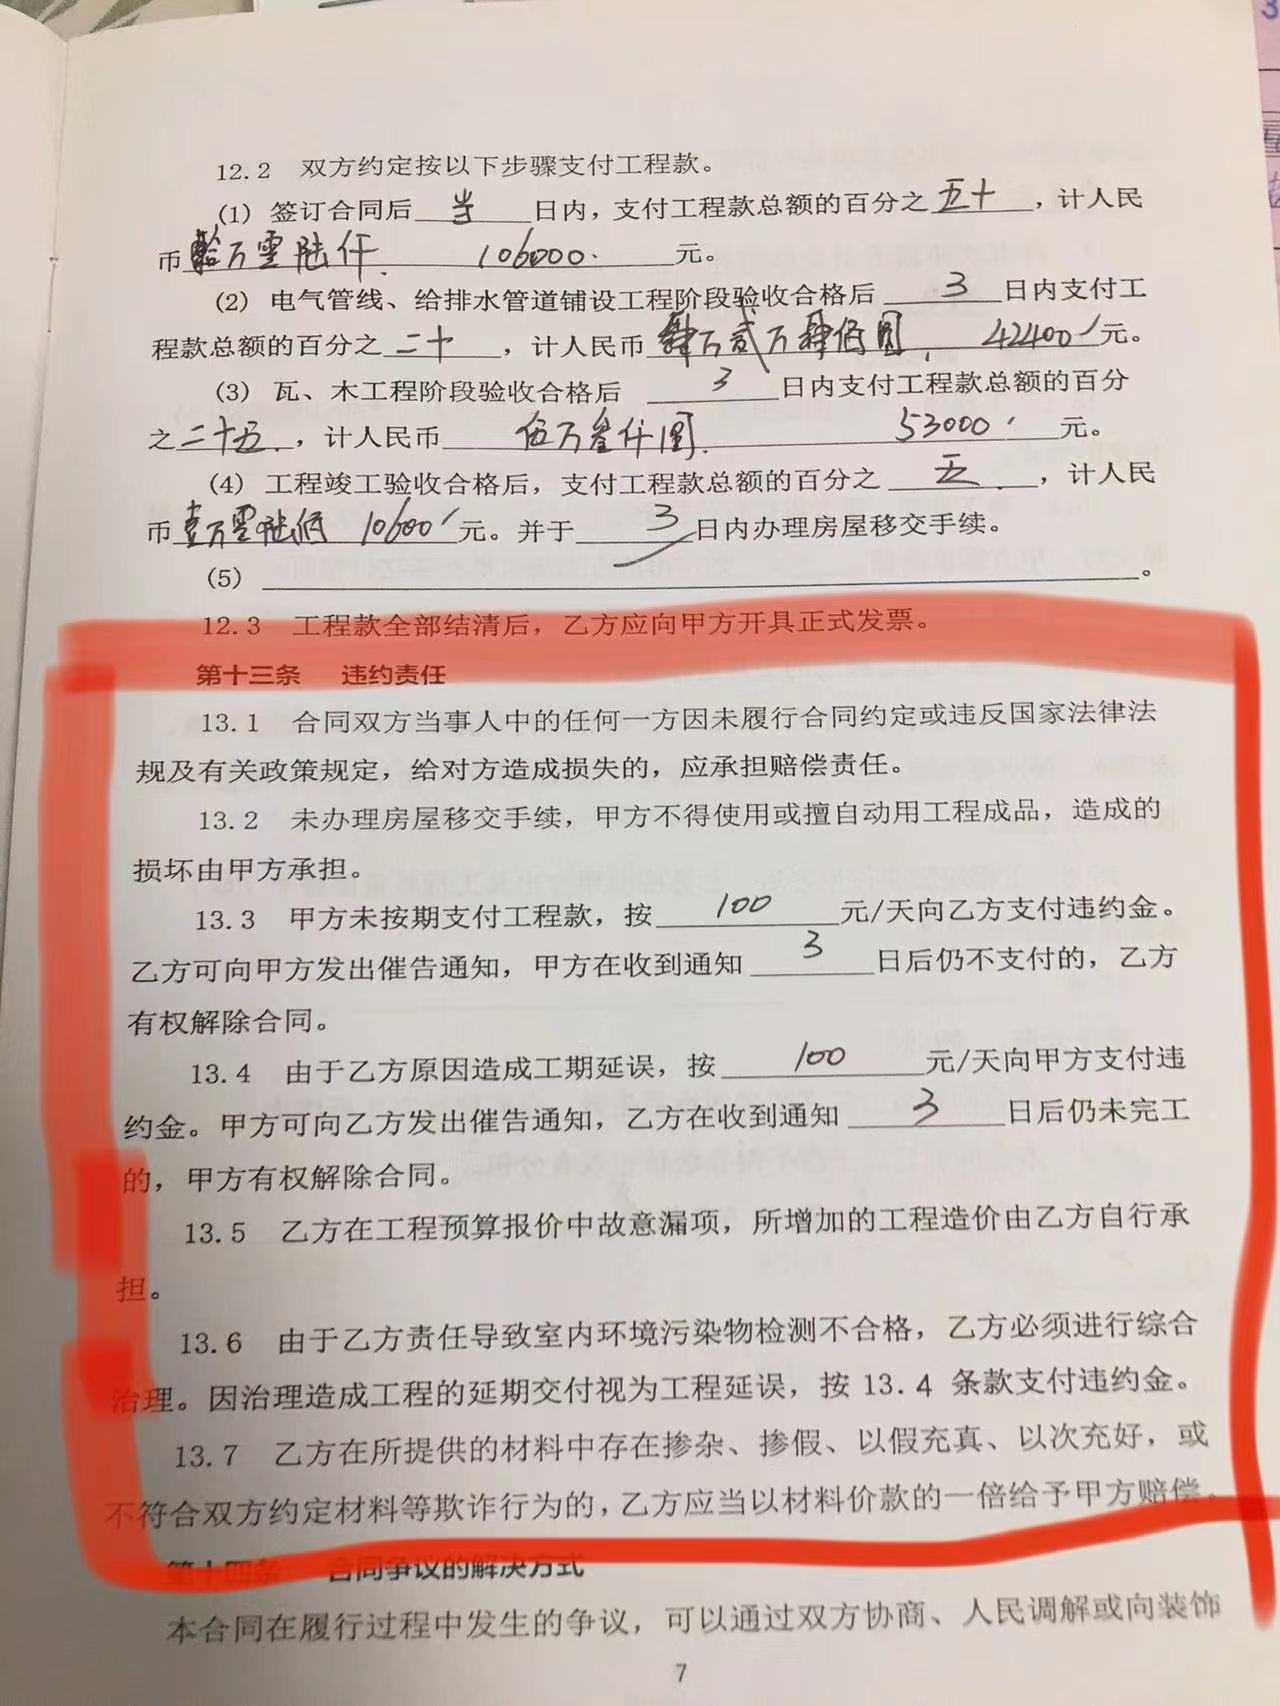 12.2 双方约定按以下步骤支付工程款。
(1) 签订合同后 当 日内，支付工程款总额的百分之 五十 ，计人民
币 拾万零陆仟 106000. 元。
(2) 电气管线、给排水管道铺设工程阶段验收合格后 3 日内支付工
程款总额的百分之 二十 ，计人民币 肆万贰万肆佰圆. 42400 元。
(3) 瓦、木工程阶段验收合格后 3 日内支付工程款总额的百分
之 二十五. ，计人民币 伍万叁仟圆. 53000 元。
(4) 工程竣工验收合格后，支付工程款总额的百分之 五 ，计人民
币 壹万零陆佰 10600 元。并于 3 日内办理房屋移交手续。
(5) 。
12.3 工程款全部结清后，乙方应向甲方开具正式发票。
第十三条 违约责任
13.1 合同双方当事人中的任何一方因未履行合同约定或违反国家法律法
规及有关政策规定，给对方造成损失的，应承担赔偿责任。
13.2 未办理房屋移交手续，甲方不得使用或擅自动用工程成品，造成的
损坏由甲方承担。
13.3 甲方未按期支付工程款，按 100 元/天向乙方支付违约金。
乙方可向甲方发出催告通知，甲方在收到通知 3 日后仍不支付的，乙方
有权解除合同。
13.4 由于乙方原因造成工期延误，按 100 元/天向甲方支付违
约金。甲方可向乙方发出催告通知，乙方在收到通知 3 日后仍未完工
的，甲方有权解除合同。
13.5 乙方在工程预算报价中故意漏项，所增加的工程造价由乙方自行承
担。
13.6 由于乙方责任导致室内环境污染物检测不合格，乙方必须进行综合
治理。因治理造成工程的延期交付视为工程延误，按 13.4 条款支付违约金。
13.7 乙方在所提供的材料中存在掺杂、掺假、以假充真、以次充好，或
不符合双方约定材料等欺诈行为的，乙方应当以材料价款的一倍给予甲方赔偿。
第十四条 合同争议的解决方式
本合同在履行过程中发生的争议，可以通过双方协商、人民调解或向装饰
7